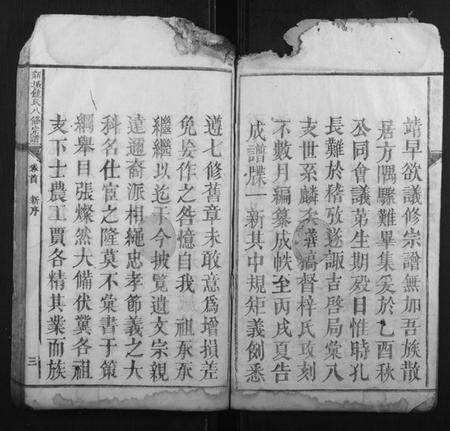 靖早欲議修宗譜無如吾族散
居方隅驟難畢集爰於乙酉秋
公同會議第生期殁日惟時孔
長難於稽攷遂諏吉啓局彙八
支世系麟炎
督梓氏攻刻
不數月編纂成帙至丙戌夏告
成譜牒一新其中規矩義例悉
遵七修舊章未敢意為增損差
免妄作之咎憶自我 祖
繼繼以迄于今披覧遺文宗親
遠邇裔派相繩忠孝節義之大
科名仕宦之隆莫不彙書于策
綱舉目張燦然大備伏冀各祖
支下士農工賈各精其業而族
氏八修宗譜
卷首
新序
三